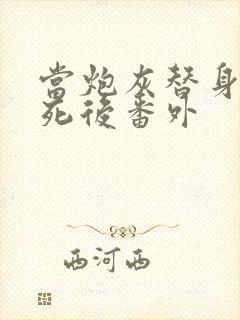 當炮灰替身
死後番外
西河西